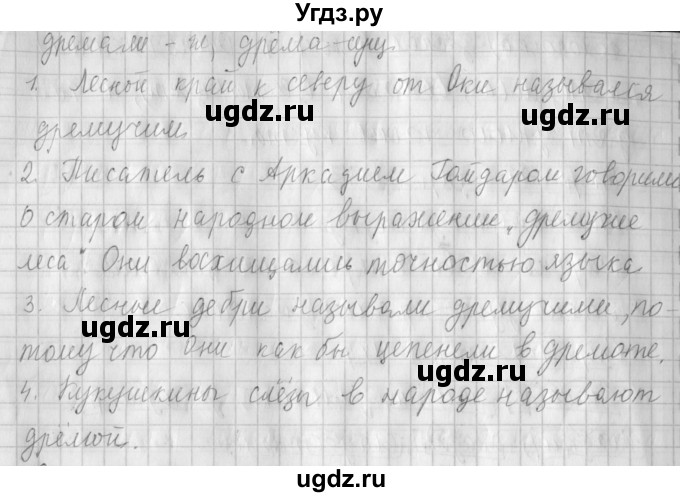 Угдз.ру
дремали - гл, дрёма - сущ
1. Лесной край к северу от Оки назывался
ugdz.ru ugdz.ru
дремучим.
2. Писатель с Аркадием Гайдаром говорили
о старом народном выражении „дремучие
ugdz.ru
леса". Они восхищались точностью языка
3. Лесные дебри называли дремучими, по-
ugdz.ru
тому что они как бы цепенели в дремоте.
ugdz.ru
4. Кукушкины слёзы в народе называют
дрёмой.
ugdz.ru